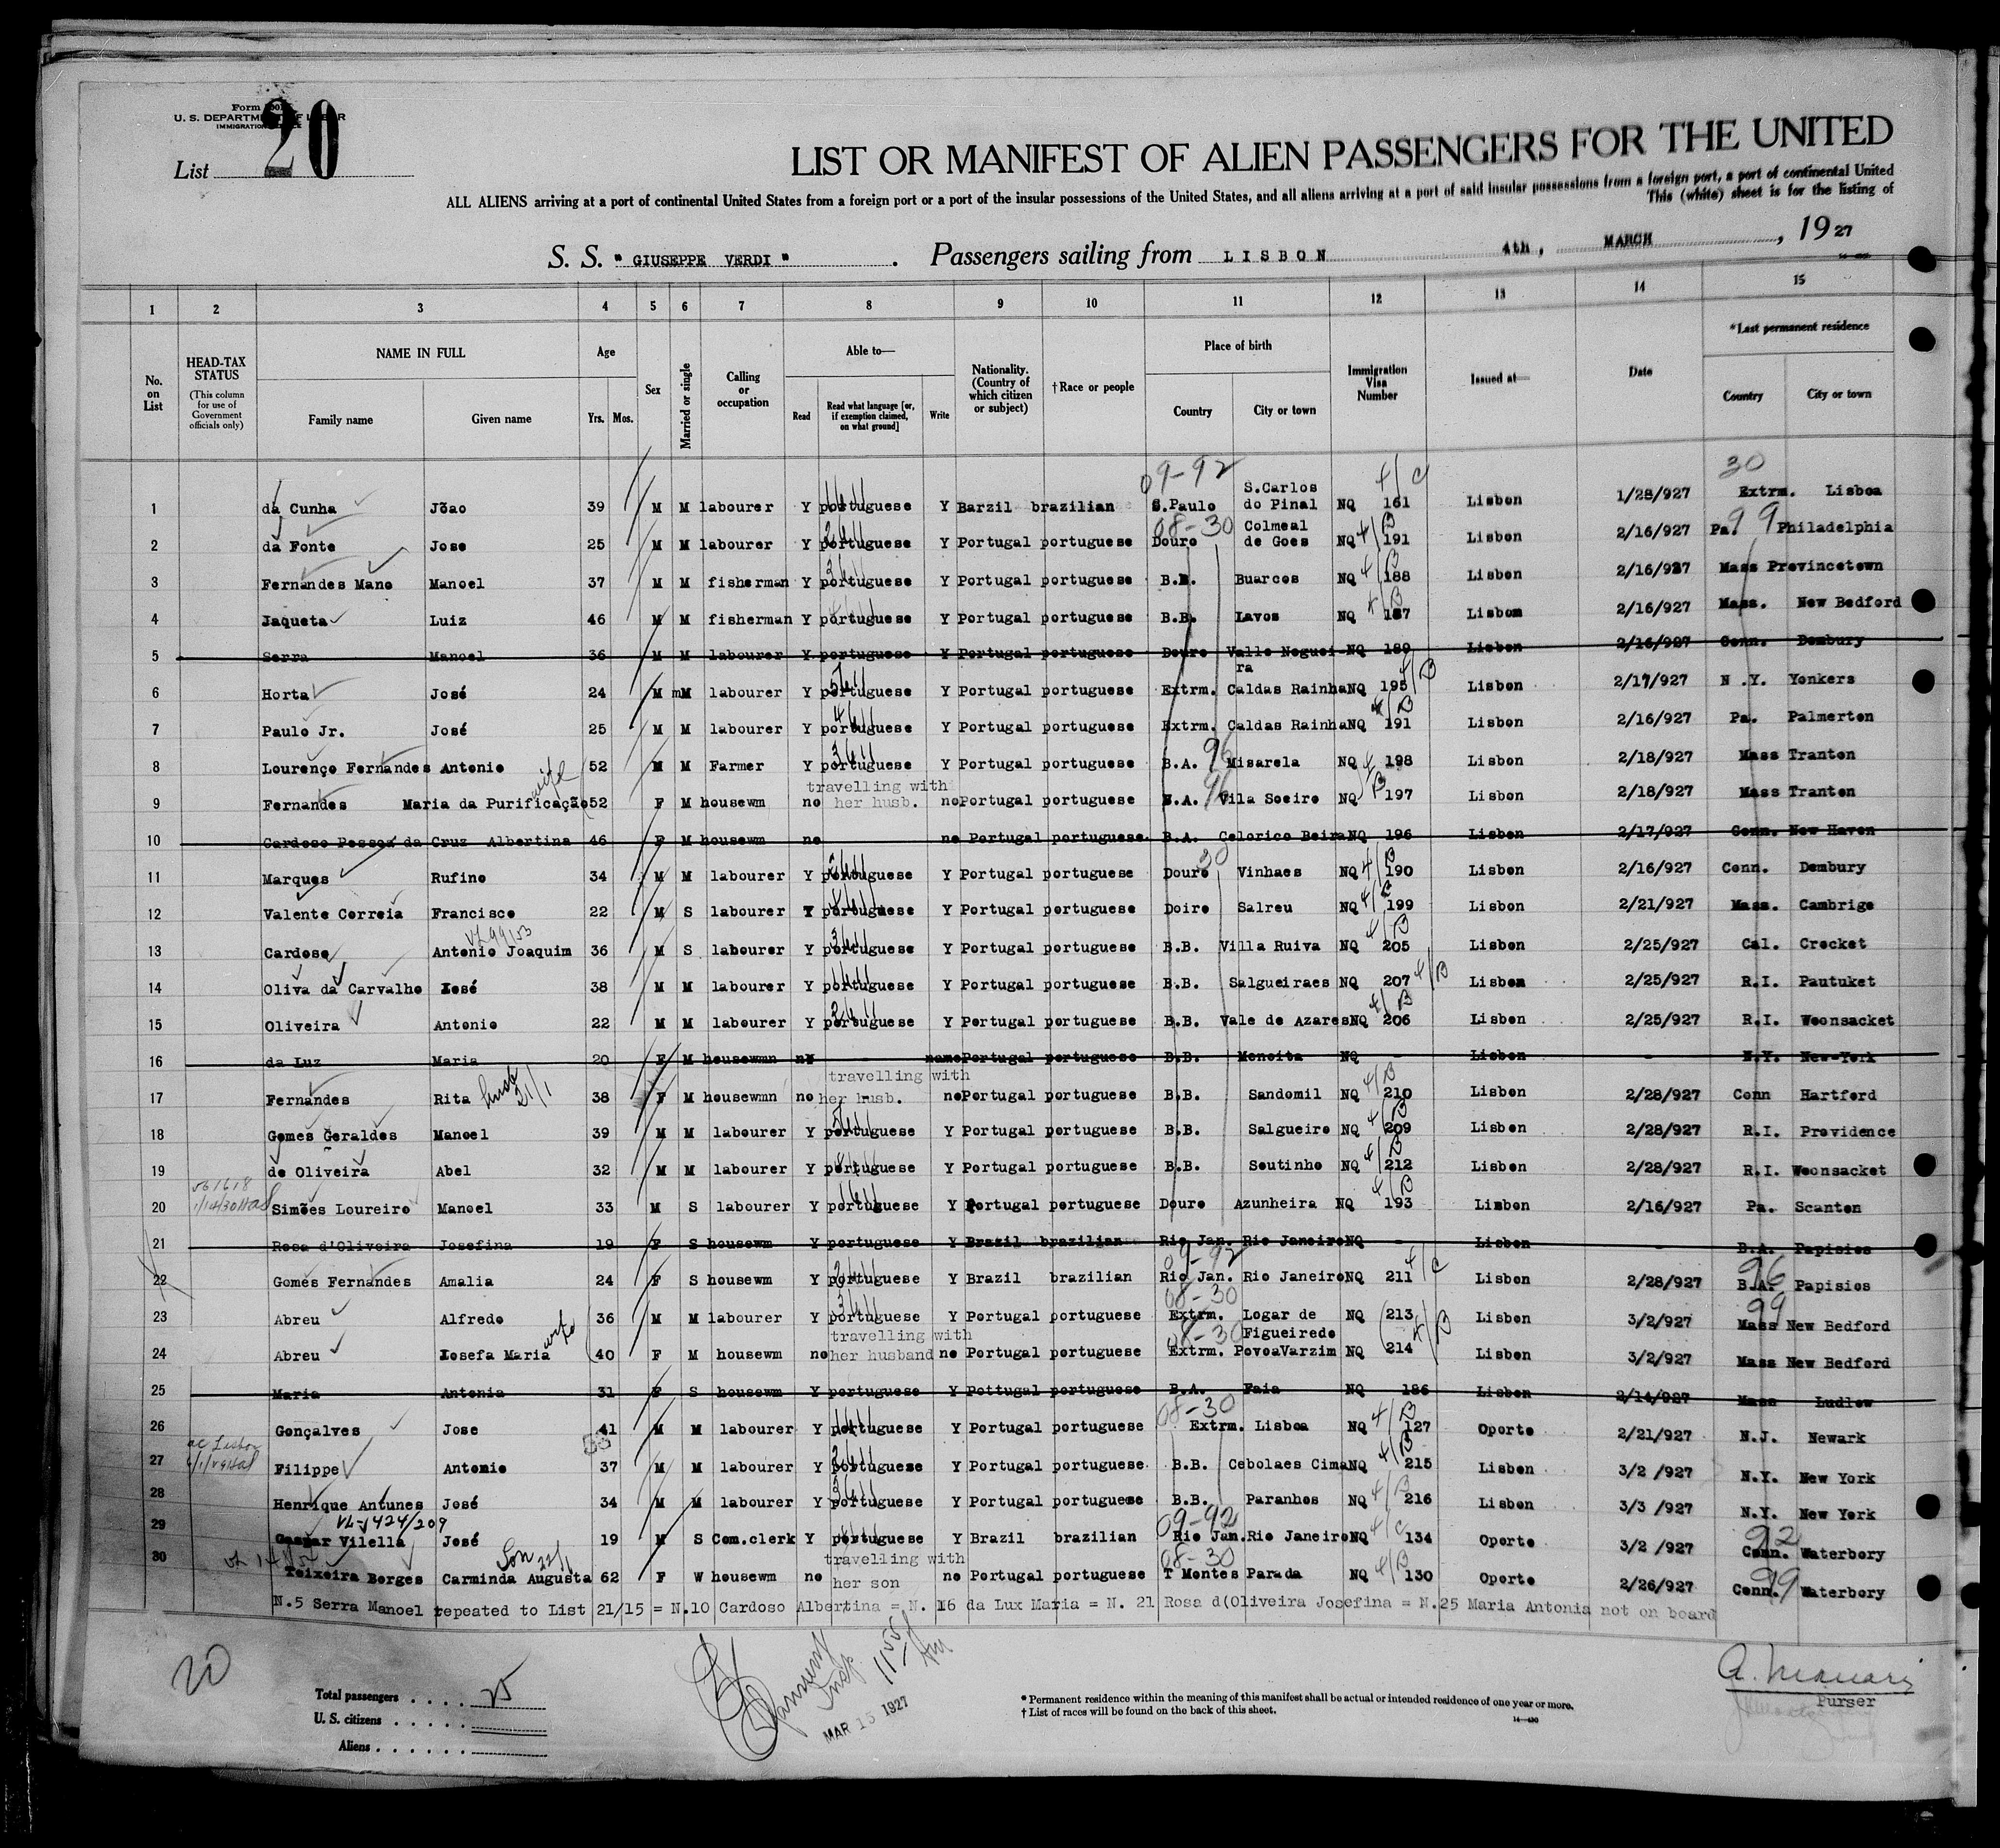 Form
U. S. DEPARTMENT OF LABOR
IMMIGRATION SERVICE
List 20
LIST OR MANIFEST OF ALIEN PASSENGERS FOR THE UNITED
ALL ALIENS arriving at a port of continental United States from a foreign port or a port of the insular possessions of the United States, and all aliens arriving at a port of said insular possessions from a foreign port, a port of continental United
This (white) sheet is for the listing of
S. S. " GIUSEPPE VERDI " . Passengers sailing from LISBON 4th, MARCH, 1927
1 2 3 4 5 6 7 8 9 10 11 12 13 14 15
No. on List
HEAD-TAX STATUS
(This column for use of Government officials only)
NAME IN FULL
Family name Given name
Age
Yrs. Mos.
Sex
Married or single
Calling or occupation
Able to—
Read Read what language [or, if exemption claimed, on what ground] Write
Nationality. (Country of which citizen or subject)
†Race or people
Place of birth
Country City or town
Immigration Visa Number
Issued at—
Date
*Last permanent residence
Country City or town
09-92 4/C 30
1 da Cunha Jõao 39 M M labourer Y portuguese Y Barzil brazilian S.Paulo S.Carlos do Pinal NQ 161 Lisbon 1/28/927 Extrm. Lisboa
08-30 99
2 da Fonte Jose 25 M M labourer Y portuguese Y Portugal portuguese Douro Colmeal de Goes NQ 4/B 191 Lisbon 2/16/927 Pa. Philadelphia
3 Fernandes Mano Manoel 37 M M fisherman Y portuguese Y Portugal portuguese B.B. Buarcos NQ 4/B 188 Lisbon 2/16/927 Mass Provincetown
4 Jaqueta Luiz 46 M M fisherman Y portuguese Y Portugal portuguese B.B. Lavos NQ 4/B 187 Lisbom 2/16/927 Mass. New Bedford
5 Serra Manoel 36 M M labourer Y portuguese Y Portugal portuguese Douro Valle Noguei-ra NQ 189 Lisbon 2/16/927 Conn. Dembury
6 Horta José 24 M mM labourer Y portuguese Y Portugal portuguese Extrm. Caldas Rainha NQ 195 4/B Lisbon 2/17/927 N .Y. Yonkers
7 Paulo Jr. José 25 M M labourer Y portuguese Y Portugal portuguese Extrm. Caldas Rainha NQ 4/B 191 Lisbon 2/16/927 Pa. Palmerton
8 Lourenço Fernandes Antonio 52 M M Farmer Y portuguese Y Portugal portuguese B.A. 96 Misarela NQ 198 Lisbon 2/18/927 Mass Tranton
wife travelling with
9 Fernandes Maria da Purificação 52 F M housewm no her husb. no Portugal portuguese B.A. 96 Vila Soeiro NQ 4/B 197 Lisbon 2/18/927 Mass Tranton
10 Cardoso Pessoa da Cruz Albertina 46 F M housewm no no Portugal portuguese. B.A. Celorico Beira NQ 196 Lisbon 2/17/927 Conn. New Haven
11 Marques Rufino 34 M M labourer Y portuguese Y Portugal portuguese Douro 30 Vinhaes NQ 4/B 190 Lisbon 2/16/927 Conn. Dembury
12 Valente Correia Francisco 22 M S labourer Y portuguese Y Portugal portuguese Doiro Salreu NQ 4/C 199 Lisbon 2/21/927 Mass. Cambrige
13 Cardoso Antonio Joaquim 36 M S labourer Y portuguese Y Portugal portuguese B.B. Villa Ruiva NQ 4/B 205 Lisbon 2/25/927 Cal. Crocket
14 Oliva da Carvalho José 38 M M labourer Y portuguese Y Portugal portuguese B.B. Salgueiraes NQ 207 4/B Lisbon 2/25/927 R.I. Pautuket
15 Oliveira Antonio 22 M M labourer Y portuguese Y Portugal portuguese B.B. Vale de Azares NQ 4/B 206 Lisbon 2/25/927 R.I. Woonsacket
16 da Luz Maria 20 F M housewmn Portugal portuguese B.B. Monoita NQ - Lisbon - N.Y. New-York
husb 21/1 travelling with
17 Fernandes Rita 38 F M housewmn no her husb. no Portugal portuguese B.B. Sandomil NQ 4/B 210 Lisbon 2/28/927 Conn Hartford
18 Gomes Geraldes Manoel 39 M M labourer Y portuguese Y Portugal portuguese B.B. Salgueiro NQ 4/B 209 Lisbon 2/28/927 R.I. Providence
19 de Oliveira Abel 32 M M labourer Y portuguese Y Portugal portuguese B.B. Soutinho NQ 4/B 212 Lisbon 2/28/927 R.I. Woonsacket
20 Simões Loureiro Manoel 33 M S labourer Y portuguese Y Portugal portuguese Douro Azunheira NQ 4/B 193 Lisbon 2/16/927 Pa. Scanton
21 Rosa d'Oliveira Josefina 19 F S housewm Y portuguese Y Brazil brazilian Rio Jan. Rio Janeiro NQ - Lisbon - B.A. Papisios
09-92 96
22 Gomes Fernandes Amalia 24 F S housewm Y portuguese Y Brazil brazilian Rio Jan. Rio Janeiro NQ 211 4/C Lisbon 2/28/927 B.A. Papisios
08-30 99
23 Abreu Alfredo 36 M M labourer Y portuguese Y Portugal portuguese Extrm. Logar de Figueiredo NQ 213 Lisbon 3/2/927 Mass New Bedford
wife travelling with 08-30 4/B
24 Abreu Iosefa Maria 40 F M housewm no her husband no Portugal portuguese Extrm. PovoaVarzim NQ 214 Lisbon 3/2/927 Mass New Bedford
25 Maria Antonia 31 F S housewm Y portuguese Y Pottugal portuguese B.A. Faia NQ 186 Lisbon 2/14/927 Mass Ludlow
08-30
26 Gonçalves Jose 41 M M labourer Y portuguese Y Portugal portuguese Extrm. Lisboa NQ 4/B 127 Oporto 2/21/927 N.J. Newark
27 Filippe Antonio 37 M M labourer Y portuguese Y Portugal portuguese. B.B. Cebolaes Cima NQ 4/B 215 Lisbon 3/2 /927 N.Y. New York
28 Henrique Antunes José 34 M M labourer Y portuguese Y Portugal portuguese B.B. Paranhos NQ 4/B 216 Lisbon 3/3 /927 N.Y. New York
09-92 92
29 Gaspar Vilella José 19 M S Com.clerk Y portuguese Y Brazil brazilian Rio Jan. Rio Janeiro NQ 4/C 134 Oporto 3/2 /927 Conn. Waterbory
Son 22/1 travelling with 08-30 99
30 Teixeira Borges Carminda Augusta 62 F W housewm no her son no Portugal portuguese T Montes Parada NQ 4/B 130 Oporto 2/26/927 Conn. Waterbory
N.5 Serra Manoel repeated to List 21/15 = N.10 Cardoso Albertina = N. 16 da Lux Maria = N. 21 Rosa d(Oliveira Josefina = N.25 Maria Antonia not on board
20
Total passengers . . . . 25
U. S. citizens . . . . .
Aliens . . . . . .
Insp.
MAR 15 1927
* Permanent residence within the meaning of this manifest shall be actual or intended residence of one year or more.
† List of races will be found on the back of this sheet.
Purser